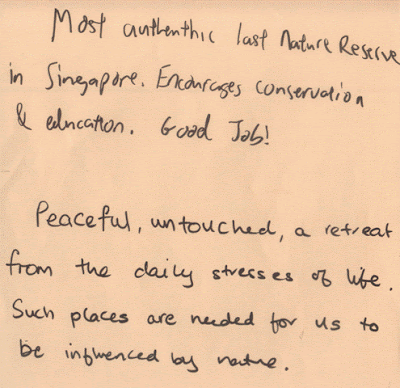 Most authenthic last Nature Reserve
in Singapore. Encourages conservation
& education. Good Job!
Peaceful, untouched, a retreat
from the daily stresses of life.
Such places are needed for us to
be influenced by nature.